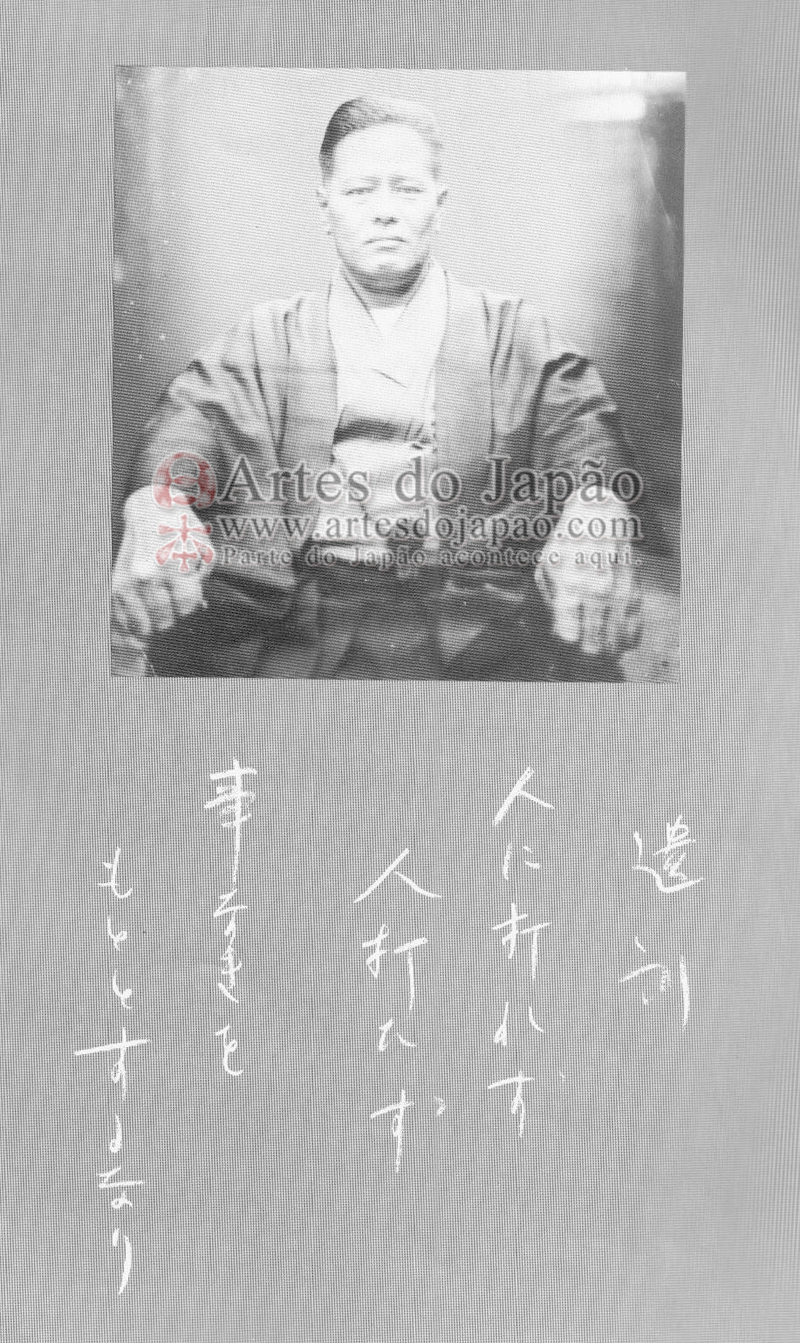 日本
Artes do Japão
www.artesdojapao.com
Parte do Japão acontece aqui.
遺訓
人に打れず
人打たず
事なきを
もととするなり